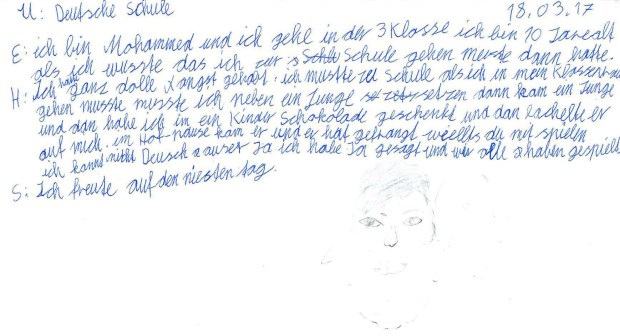 Ü: Deutsche Schule 18.03.17
E: ich bin Mohammed und ich gehe in der 3 Klasse ich bin 10 Jare alt
als ich wusste das ich zur Schule gehen muste dann hatte.
H: Ich hatte ganz dolle Angst gehabt. ich musste zu Schule als ich in mein
gehen musste musste ich neben ein Junge setzen dann kam ein Junge
und dan habe ich im ein Kinder Schokolade geschenkt und dan lachelte er
auf mich. im Hof kam er und er hat gefrangt weellts du mit spielen
ich kannte nicht Deusch auser Ja ich habe Ja gesagt und wir alle haben gespielt
S: Ich freute auf den niesten tag.